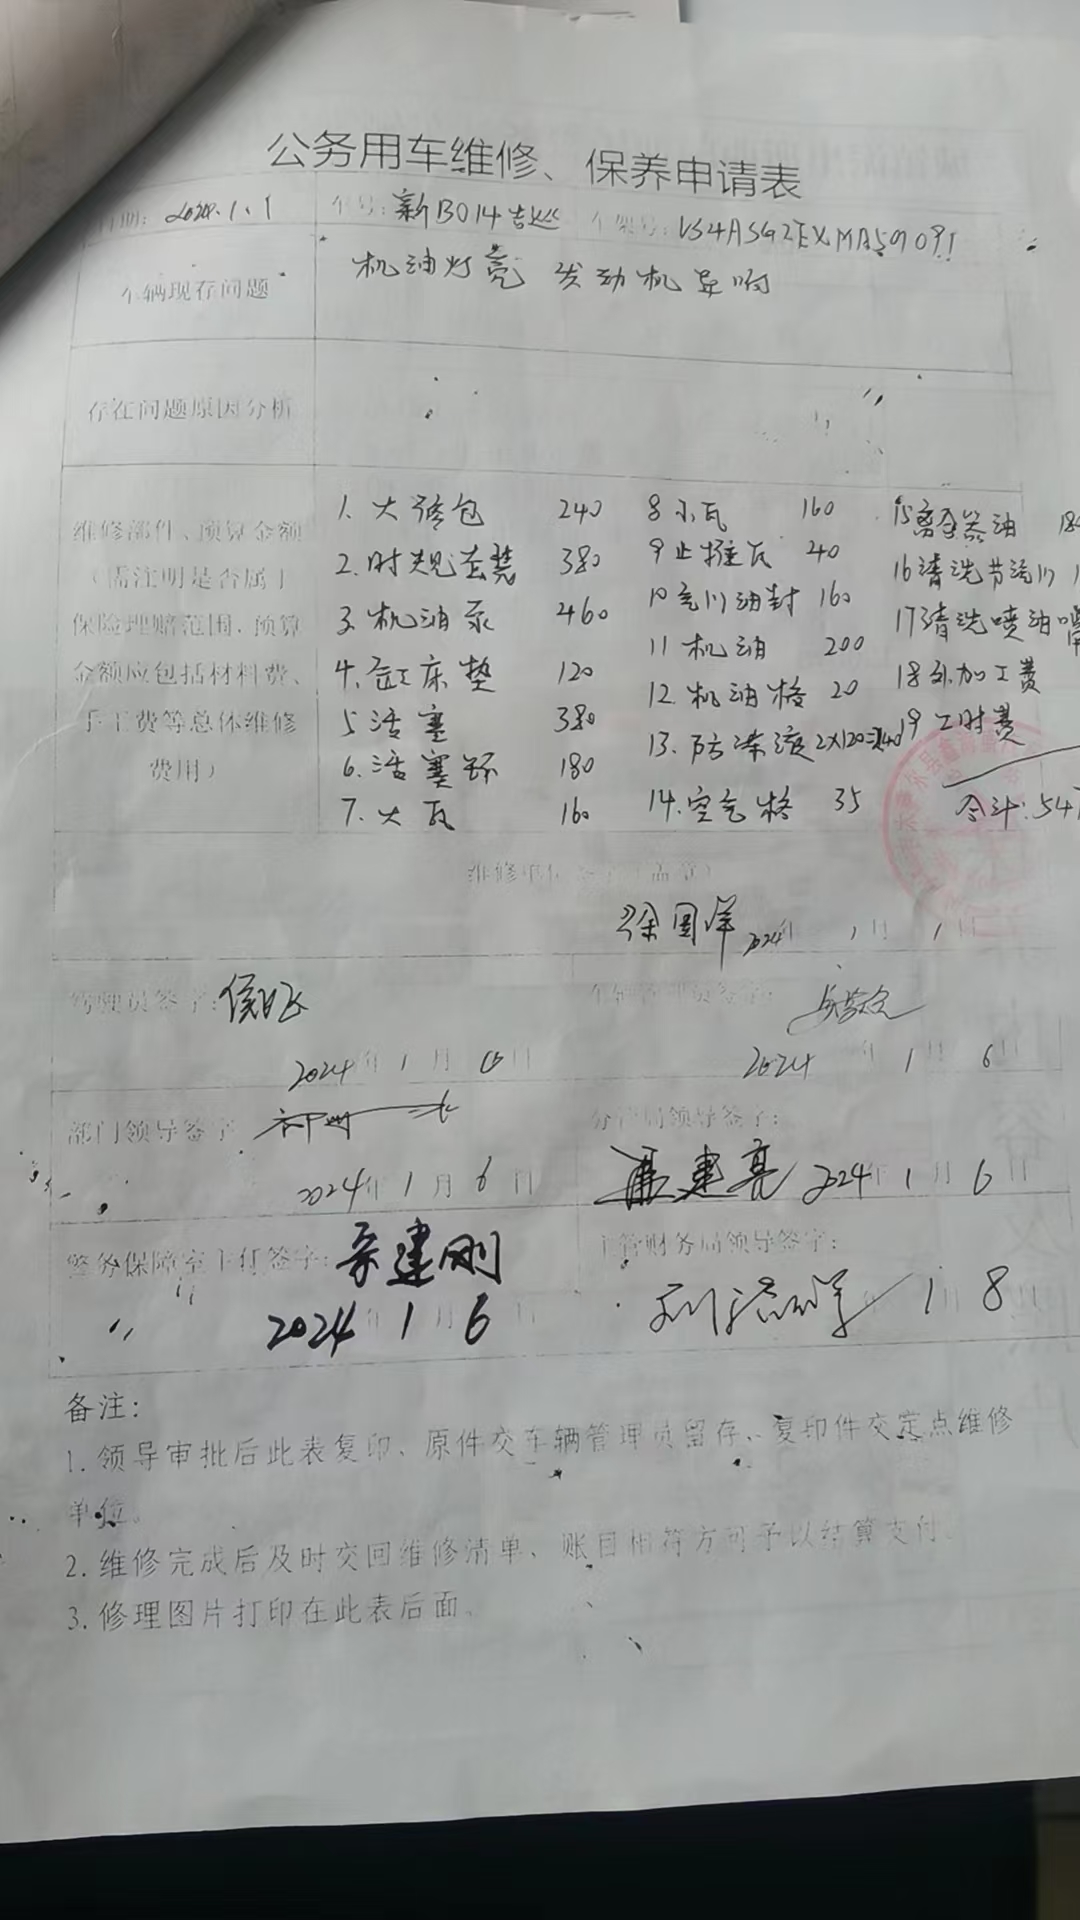 公务用车维修、保养申请表
日期: 2024.1.1 车号: 新B014 车架号:
车辆现存问题 机油灯亮 发动机异响
存在问题原因分析
维修部件、预算金额
（需注明是否属于
保险理赔范围.预算
金额应包括材料费、
手工费等总体维修
费用）
1. 大修包 240
2. 时规套装 380
3. 机油泵 460
4. 缸床垫 120
5 活塞 380
6. 活塞环 180
7. 大瓦 160
8 小瓦 160
9 止推瓦 40
10 气门油封 160
11 机油 200
12. 机油格 20
13. 防冻液 2×120=240
14. 空气格 35
15 离合器油
16 清洗节汽门
17 清洗喷油嘴
18 外加工费
19 工时费
合计: 54
维修单位 (盖章)
徐国洋 2024年 1月 1日
驾驶员签字:
2024年 1月 6日
车辆管理员签字:
2024年 1月 6日
部门领导签字
2024年 1月 6日
分管局领导签字:
建亮 2024年 1月 6日
警务保障室主任签字: 建刚
2024年 1月 6日
主管财务局领导签字:
1月 8日
备注:
1. 领导审批后此表复印、原件交车辆管理员留存、复印件交定点维修
单位。
2. 维修完成后及时交回维修清单、账目相符方可予以结算支付。
3. 修理图片打印在此表后面。